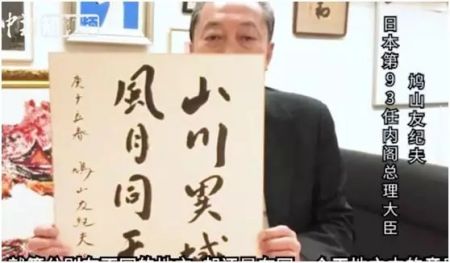 鸠山友纪夫
日本第93任内阁总理大臣
山川異域
風月同天
庚子立春 鳩山友纪夫